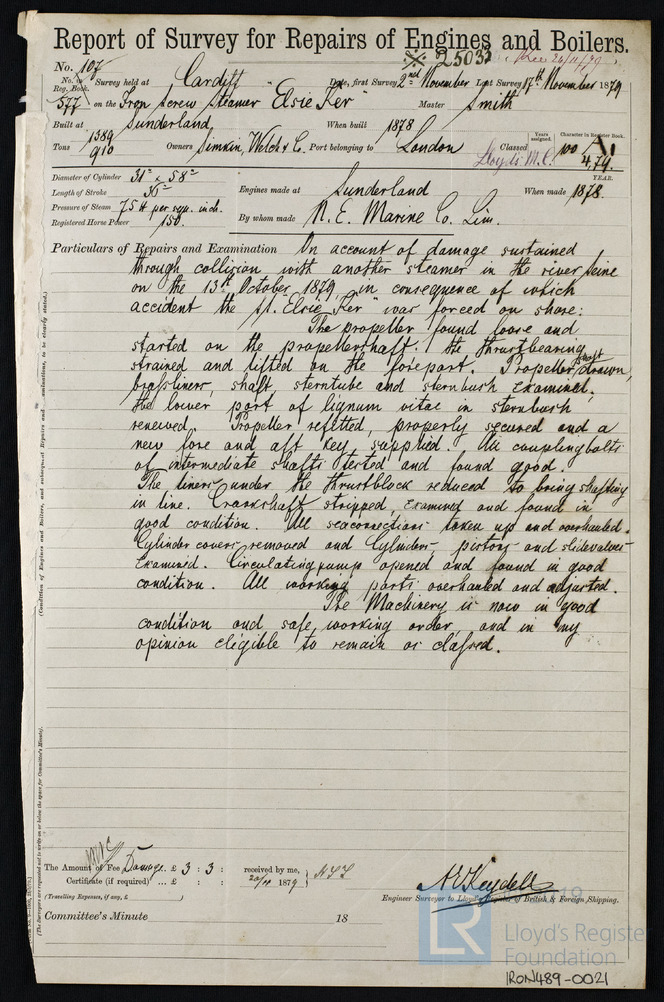 Report of Survey for Repairs of Engines and Boilers.
25033 Rec 26/11/79
No. 107
No. in Reg. Book. Survey held at Cardiff Date, first Survey 2nd November Last Survey 17th November 1879
577 on the Iron Screw Steamer "Elsie Ker" Master Smith
Built at Sunderland When built 1878
Tons 1389 910 Owners Simkin, Welch & C. Port belonging to London Classed Lloyds M.C. Years assigned. Character in Register Book. 100 A1 4,79.
YEAR.
Diameter of Cylinder 31" x 58"
Length of Stroke 36"
Pressure of Steam 75 lb per sqr. inch.
Registered Horse Power 150.
Engines made at Sunderland When made 1878.
By whom made N. E. Marine Co. Lim.
Particulars of Repairs and Examination On account of damage sustained
through collision with another steamer in the river Seine
on the 13th October, 1879, in consequence of which
accident the s/s. "Elsie Ker" was forced on shore:
The propeller found loose and
started on the propellershaft. the thrustbearing
strained and lifted on the forepart. Propeller shaft drawn,
brassliners, shaft sterntube and sternbush examined.
the lower part of lignum vitae in sternbush
renewed. Propeller refitted, properly secured and a
new fore and aft key supplied. All couplingbolts
of intermediate shafts tested and found good.
The liners under the thrustblock reduced to bring shafting
in line. Crankshaft stripped, examined and found in
good condition. All seaconnections taken up and overhauled.
Cylinder covers removed and Cylinders, pistons and slidevalves
examined. Circulating pump opened and found in good
condition. All working parts overhauled and adjusted.
The Machinery is now in good
condition and safe working order, and in my
opinion eligible to remain as classed.
The Amount of Fee Damage. £ 3 : 3 : received by me,
Certificate (if required) ... £ : : 20/11 1879
(Travelling Expenses, if any, £ )
Engineer Surveyor to Lloyd's Register of British & Foreign Shipping.
Committee's Minute 18
LR
Lloyd's Register
Foundation
IRON489-0021